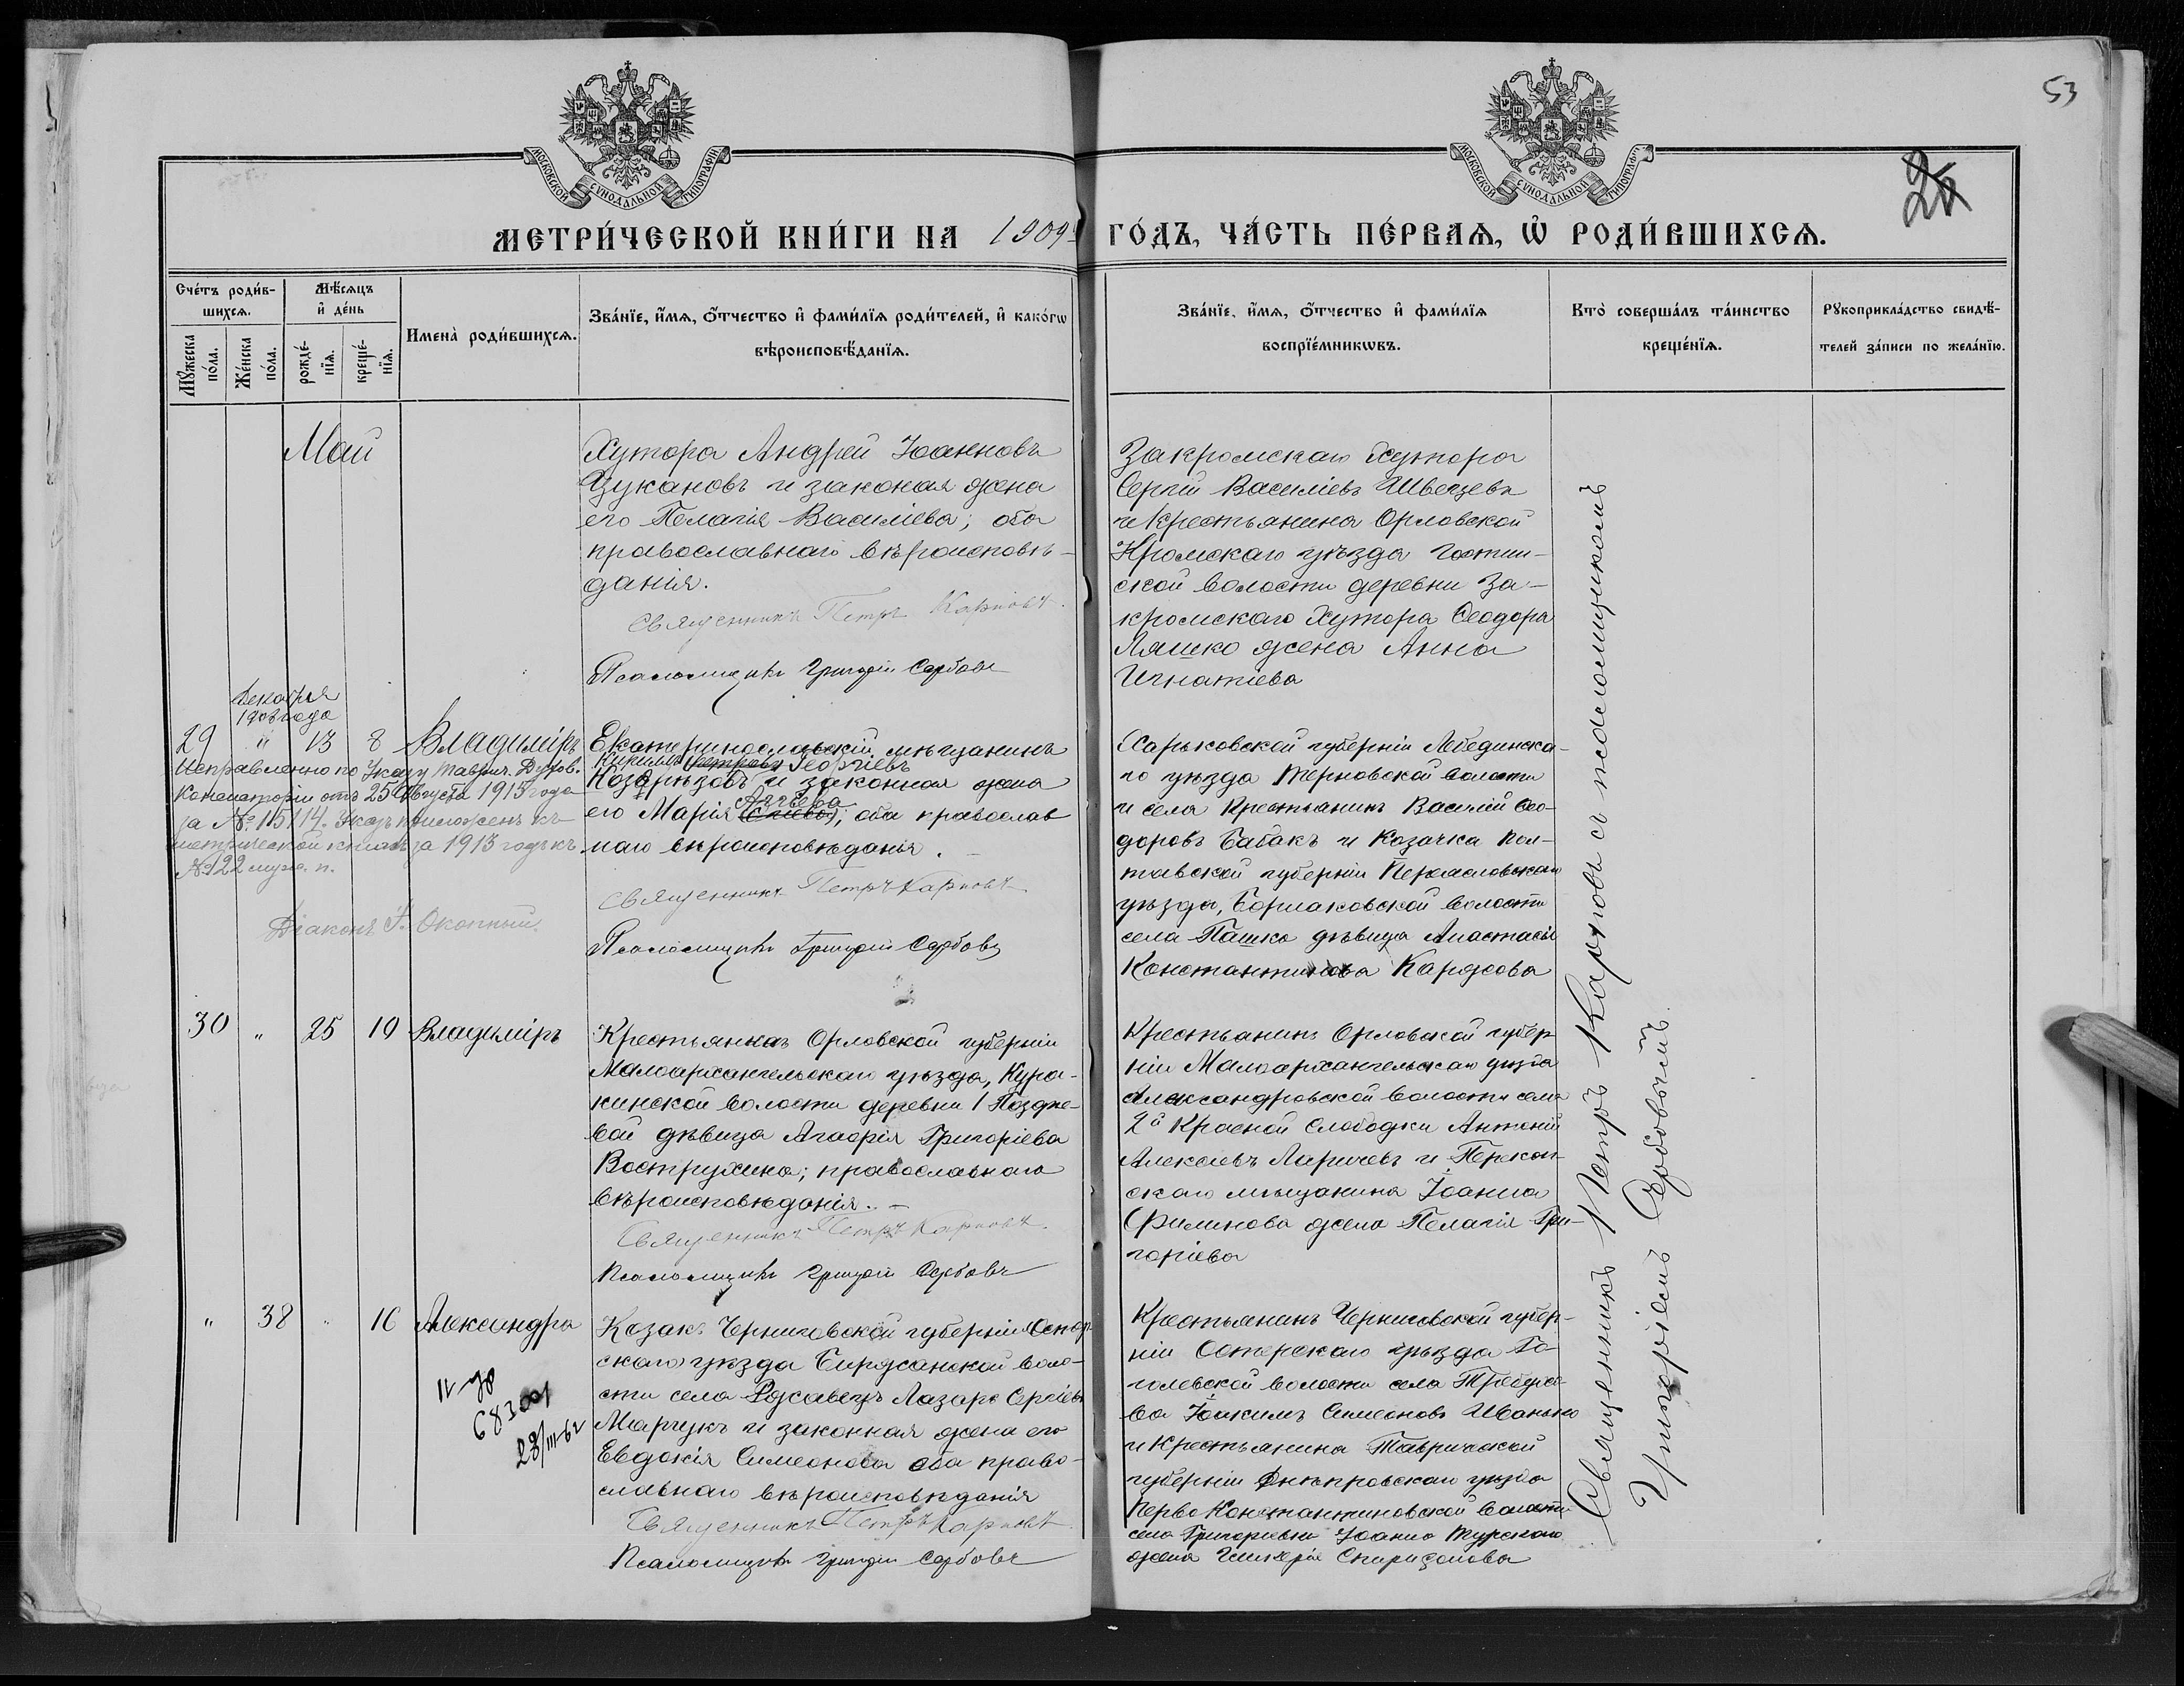 53
26
МОСКОВСКОЙ СѴНОДАЛЬНОЙ ТИПОГРАФІИ
МОСКОВСКОЙ СѴНОДАЛЬНОЙ ТИПОГРАФІИ
МЕТРИ́ЧЕСКОЙ КНИ́ГИ НА 1909й ГО́ДЪ, ЧА́СТЬ ПЕ́РВАѦ, Ѡ҆ РОДИ́ВШИХСѦ.
Сче́тъ роди́в-
шихсѧ.
Мꙋ́жеска по́ла.
Же́нска по́ла.
Мѣ́сѧцъ
и҆ де́нь
рожде́-
нїѧ.
креще́-
нїѧ.
Имена̀ роди́вшихсѧ.
Зва́нїе, и҆́мѧ, ѻ҆́тчество и҆ фами́лїѧ роди́телей, и҆ како́гѡ
вѣроисповѣ́данїѧ.
Зва́нїе, и҆́мѧ, ѻ҆́тчество и҆ фами́лїѧ
воспрїе́мникѡвъ.
Кто̀ соверша́лъ та́инство
креще́нїѧ.
Рꙋкоприкла́дство свидѣ́-
телей за́писи по жела́нїю.
Май
Хутора Андрей Іоанновъ
Цукановъ и законая жена
его Пелагія Василіева; оба
православнаго вѣроисповѣ-
данія.
Священникъ Петръ Карповъ.
Псаломщикъ Григорій Сербовъ
Закромскаго Хутора
Сергій Василіевъ Швецевъ
и крестьянина Орловской
Кромскаго уѣзда Гостин-
ской волости деревни За-
кромскаго Хутора Ѳеодора
Ляшко жена Анна
Игнатіева
Декабря
1908 года
29 " 13 8 Владиміръ
Исправленно по Указу Таврич. Духов.
Консисторіи отъ 25 Августа 1913 года
за № 15114. Указъ приложенъ къ
метрической книгѣ за 1913 годъ къ
№ 22 муж. п.
Діаконъ Ѳ. Окопный.
Екатеринославскій мѣщанинъ
Кирилъ Петровъ Георгіевъ
Козарѣзовъ и законная жена
Авчьева
его Марія; оба православ
наго вѣроисповѣданія.
Священникъ Петръ Карповъ
Псаломщикъ Григорій Сербовъ
Харьковской губерніи Лебединска-
го уѣзда Терновской волости
и села Крестьянинъ Василій Ѳео-
доровъ Бабакъ и Козачка Пол-
тавской губерніи Переяславскаго
уѣзда, Борщаковской волости
села Пашко дѣвица Анастасія
Константинова Каряова
30 " 25 10 Владиміръ
Крестьянка Орловской губерніи
Малоархангельскаго уѣзда, Кура-
кинской волости деревни 1 Поздне-
вой дѣвица Агафія Григоріева
Вострухина; православнаго
вѣроисповѣданія.
Священникъ Петръ Карповъ
Псаломщикъ Григорій Сербовъ
Крестьянинъ Орловской губер
ніи Малоархангельскаго уѣзда
Александровской волости села
2й Красной Слободки Антоній
Алексіевъ Ларичевъ и Перекоп-
скаго мѣщанина Іоанна
Филинова жена Пелагія Гри-
горіева
" 38 " 16 Александра
II-ЯР
683001
28/III-62
Козакъ Черниговской губерніи Остер-
скаго уѣзда Бирежанской воло-
сти села Ржавецъ Лазарь Сергіевъ
Марчукъ и законная жена его
Евдокія Симеонова оба право-
славнаго вѣроисповѣданія
Священникъ Петръ Карповъ
Псаломщикъ Григорій Сербовъ
Крестьянинъ Черниговской губер-
ніи Остерскаго уѣзда Го-
голевской волости села Требухо-
ва Іоакимъ Симеоновъ Иванько
и крестьянина Таврической
губерніи Днѣпровскаго уѣзда
Перво Константиновской волости
села Григорьевки Іоанна Турскаго
жена Гликерія Спиридонова
Священникъ Петръ Карповъ съ псаломщикомъ
Григоріемъ Сербовымъ.